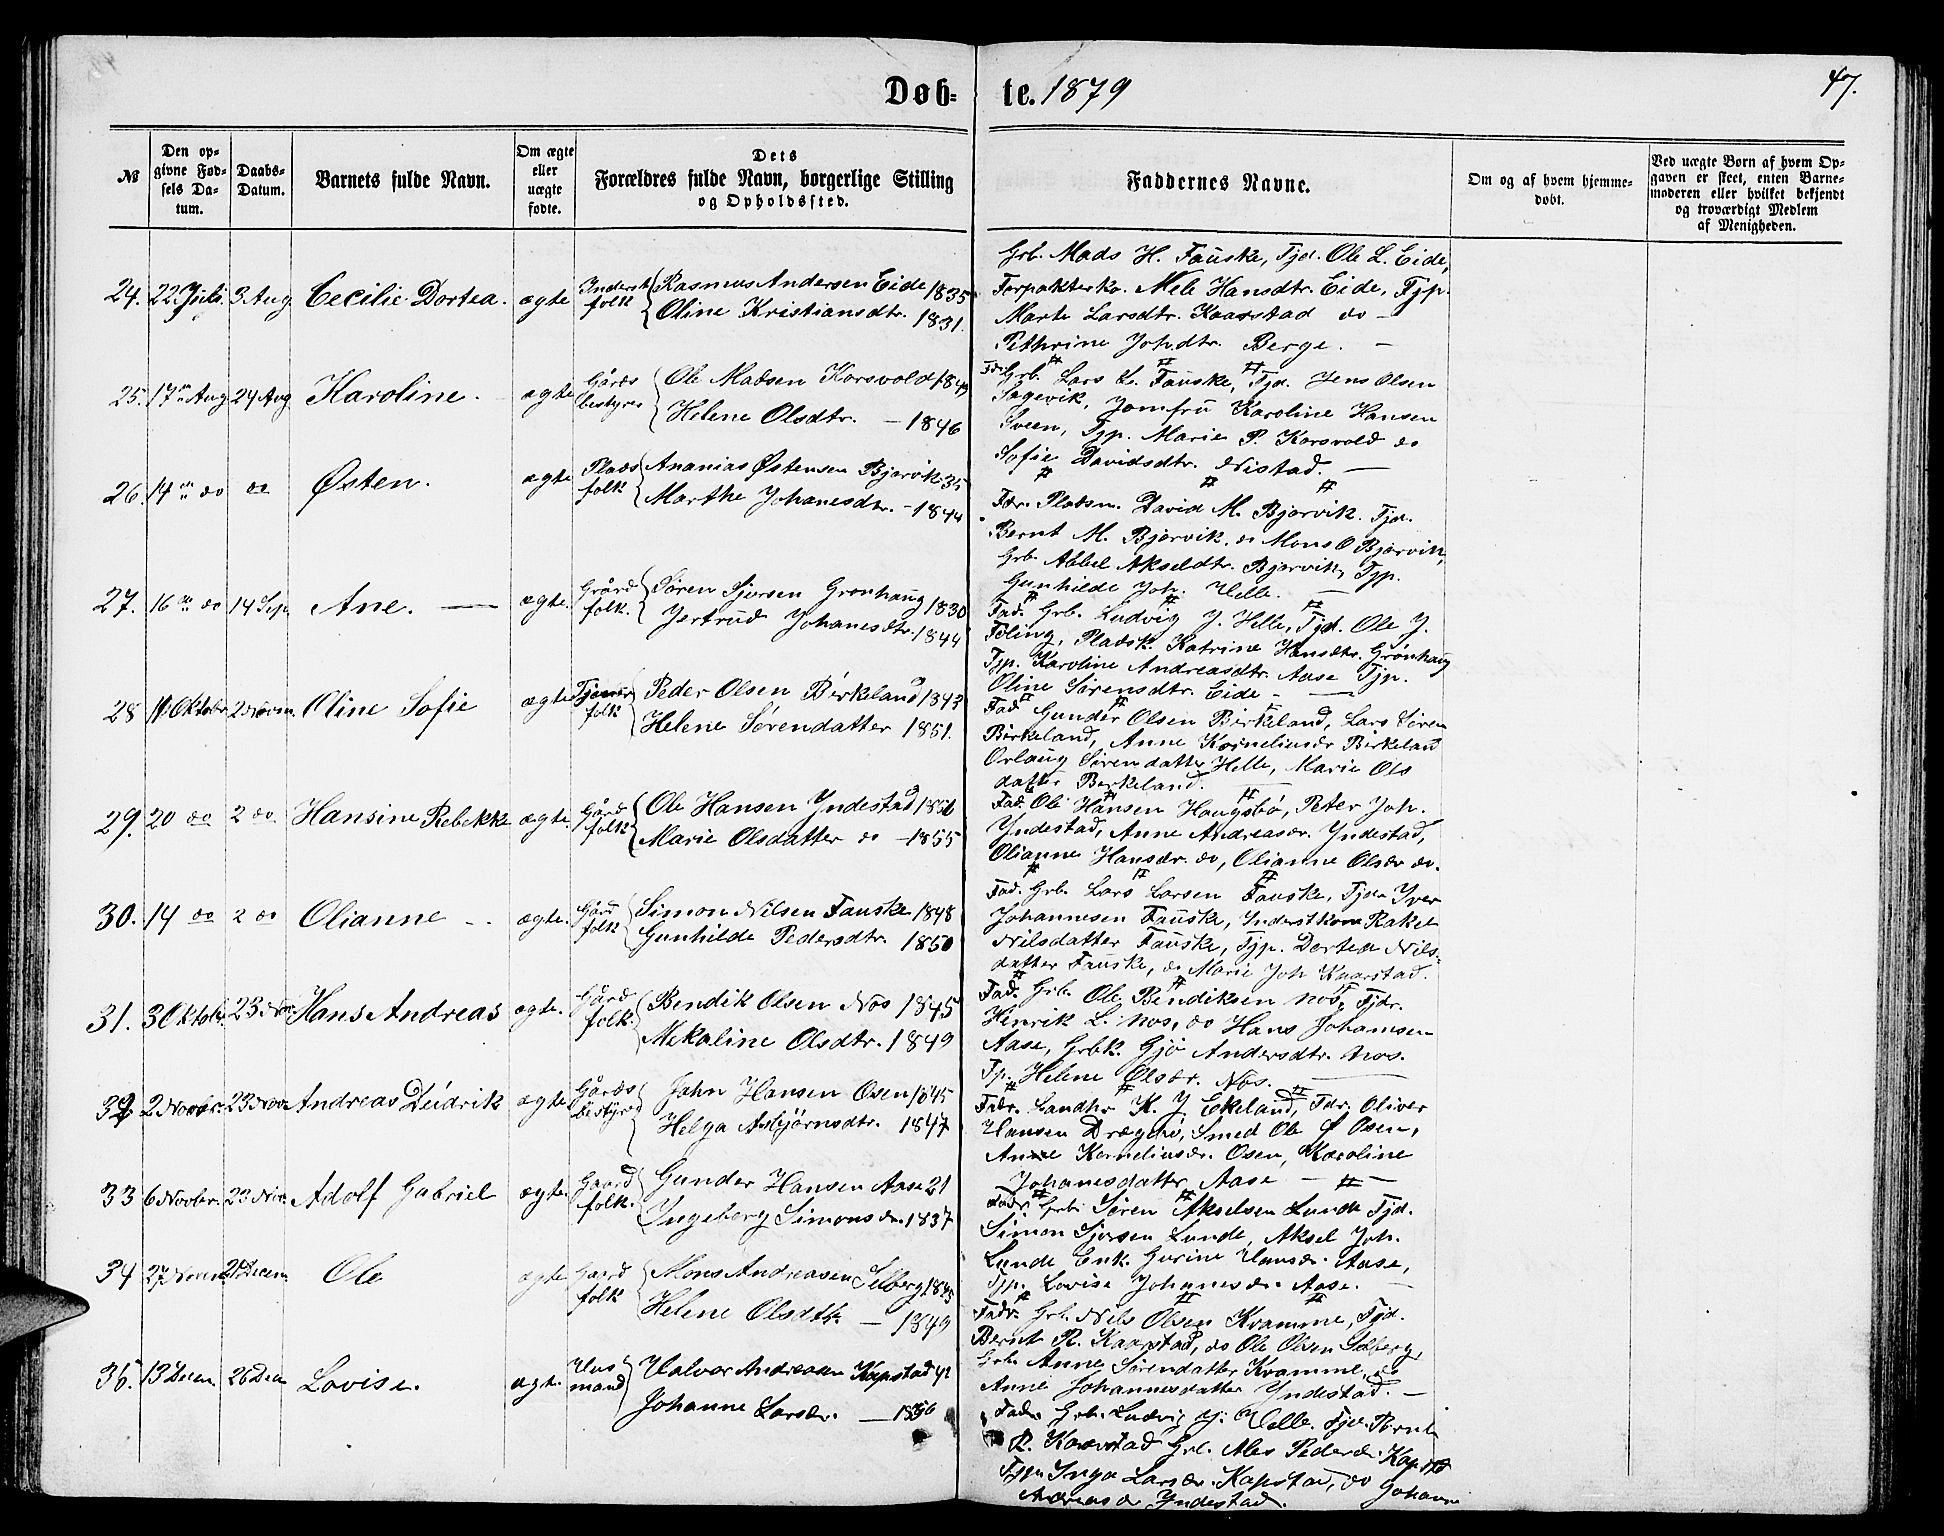 Døb-te. 1879
47.
№
Den opgivne Fødsels Datum.
Daabs-Datum.
Barnets fulde Navn.
Om ægte eller uægte fødte.
Dets Forældres fulde Navn, borgerlige Stilling og Opholdssted.
Faddernes Navne.
Om og af hvem hjemmedøbt.
Ved uægte Børn af hvem Opgaven er skeet, enten Barnemoderen eller hvilket bekjendt og troværdigt Medlem af Menigheden.
24. 22 Juli. 3 Aug. Cecilie Dortea. ægte Inderst folk Rasmus Andersen Eide 1835
Oline Kristiansdtr. 1831.
Grb. Mads H. Fauske, Tjd. Ole L. Eide,
Forpakterko. Mele Hansdtr. Eide, Tjp.
Marte Larsdtr. Kaarstad do -
Pethrine Joh.dtr. Berge. -
25. 17 Aug 24 Aug Karoline. ægte Gårds bestyrer Ole Madsen Korsvold 1849
Helene Olsdtr. - 1846
Grb. Lars L. Fauske, Tjd. Jens Olsen
Sagevik, Jomfru Karoline Hansen
Sveen, Tjp. Marie P. Korsvold do
Sofie Davidsdtr. Nistad. -
26. 14 do do Østen. ægte Plads folk Ananias Østensen Bjørvik 35
Marthe Johanesdtr. - 1844
Fdr. Pladsm. David M. Bjørvik. Tjd.
Bernt M. Bjørvik, do Mons O Bjørvik,
Grb. Abbel Akseldtr. Bjørvik, Tjp.
Gunhilde Joh. Helle. -
27. 16 do 14 Sep. Ane. - ægte. Gård folk. Søren Sjursen Grønhaug 1830
Jertrud Johanesdtr. 1844
Fad. Grb. Ludvig J. Helle, Tjd. Ole J.
Føling, Pladsk. Katrine Hansdtr. Grønhaug
Tjp. Karoline Andreasdtr. Aase Tjp.
Oline Sørensdtr. Eide -
28 11 Oktobr. 2 Novem. Oline Sofie ægte Tjener folk Peder Olsen Birkland 1843
Helene Sørendatter 1851.
Fad. Gunder Olsen Birkeland, Lars Søren
Birkeland, Anne Kornelius dr Birkeland
Orlaug Sørendatter Helle, Marie Ols
datter Birkeland.
29. 20 do 2 do. Hansine Rebekke ægte. Gård folk Ole Hansen Yndestad 1856
Marie Olsdatter do - 1855
Fad. Ole Hansen Haugsbø, Peter Joh.
Yndestad, Anne Andreasdr. Yndestad,
Olianne Hansdr. do, Olianne Olsdr do.
30. 14 do 2 do Olianne - - ægte. Gård folk Simon Nilsen Fauske 1848
Gunhilde Pedersdtr. 1850
Fad. Grb. Lars Larsen Fauske, Tjd Iver
Johannesen Fauske, Inderstkone Rakel
Nilsdatter Fauske, Tjp. Dortea Nils-
datter Fauske, do Marie Joh Kaarstad.
31. 3 Oktobr. 23 Nov. Hans Andreas ægte. Gård folk. Bendik Olsen Nos 1845
Mekaline Olsdtr. 1849
Fad. Grb. Ole Bendiksen Nos, Tjdr.
Henrik L. Nos, do Hans Johansen
Aase, Grbk. Gjø Andersdtr. Nos.
Tp. Helene Olsdr. Nos. -
32 2 Novbr. 23 Nov. Andreas Deidrik ægte Gårds bestyrer Jahn Hansen Osen 1845
Helga Asbjørnsdtr. 1847
Fadr. Landhr K. J. Ekeland, Tdr. Oliver
Hansen Drægebø, Smed Ole J Osen,
Anne Korneliusdr. Osen, Karoline
Johanesdatter Aase -
33 6 Novbr. 23 Nov. Adolf Gabriel ægte. Gaard folk. Gunder Hansen Aase 21
Ingeborg Simonsdr. 1837
Fadr. Grb. Søren Akselsen Lunde Tjd.
Simon Sjursen Lunde, Aksel Joh.
Lunde Enk. Gurine Hansdr. Aase,
Tjp. Lovise Johannesdr. Aase. -
34 27 Novem 21 Decem. Ole ægte Gaard folk Mons Andreasen Solberg 1845
Helene Olsdtr. - 1849
Fadr. Grb. Nils Olsen Kvamme, Tjd.
Bernt R. Kaarstad, do Ole Olsen Solberg,
Grb. Anne Sørendatter Kvamme, do
Anne Johannesdatter Yndestad. -
35. 13 Decem 26 Dec Lovise. ægte. Hus mand Halvor Andreasen Kapstad 42
Johanne Larsdr. - 1856
Fadr. Grb. Ludvig J. Helle. Tjd. Bernt
R. Kaarstad Grb. Ales Pedersdr. Kapstd
Tjp. Inga Larsdr. Kapstad, do Johanne
Andreasdr Yndestad.